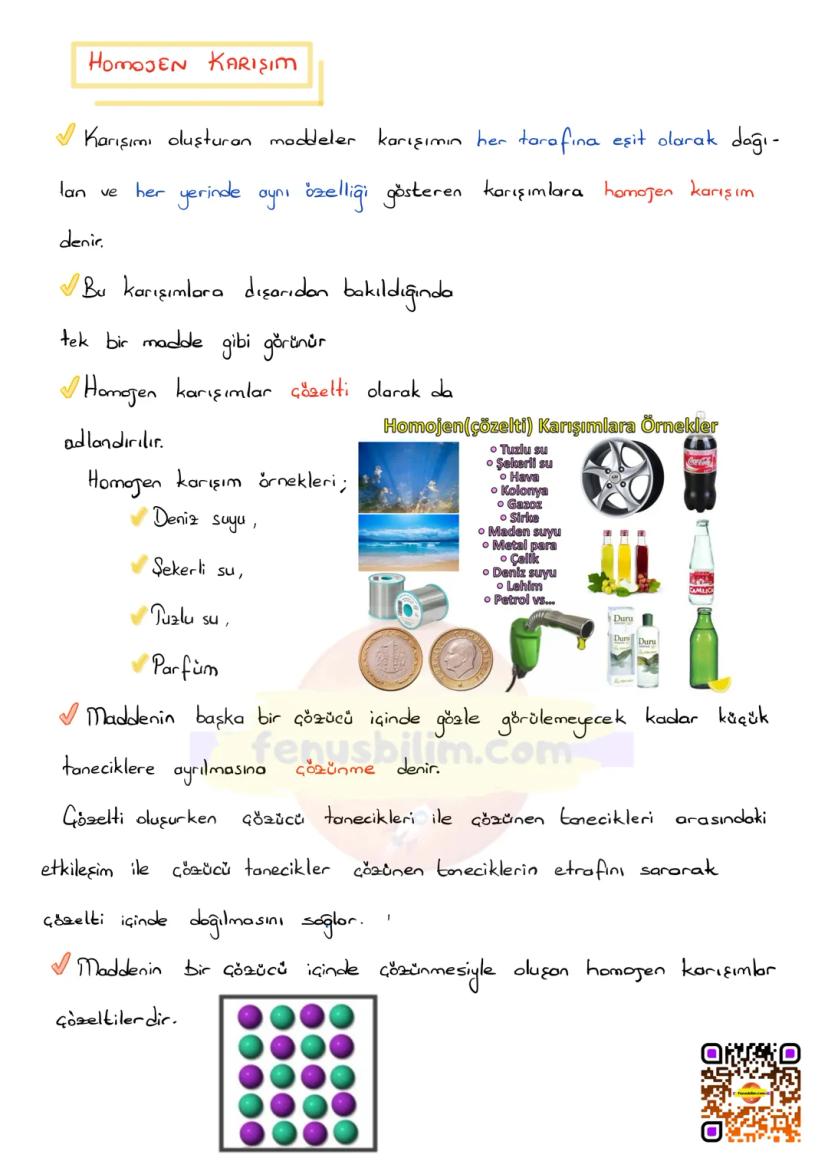 HOMOJEN KARIŞIM
Karışımı oluşturan maddeler karışımın her tarafına eşit olarak dağı-
lan ve her yerinde aynı özelliği gösteren karışımlara homojen karışım
denir.
Bu karışımlara dışarıdan bakıldığında
tek bir madde gibi görünür
Homojen karışımlar çözelti olarak da
adlandırılır.
Homojen karışım örnekleri;
Deniz suyu,
Şekerli su,
Tuzlu su,
Parfüm
Homojen(çözelti) Karışımlara Örnekler
Tuzlu su
Şekerli su
Hava
Kolonya
Gazoz
Sirke
Maden suyu
Metal para
Çelik
Deniz suyu
Lehim
Petrol vs...
Coca-Cola
ÇAMLICA
Duru
Duru
Duru
Maddenin başka bir çözücü içinde gözle görülemeyecek kadar küçük
taneciklere ayrılmasına çözünme denir.
fenusbilim.com
Çözelti oluşurken çözücü tanecikleri ile çözünen tanecikleri arasındaki
etkileşim ile çözücü tanecikler çözünen taneciklerin etrafını sararak
çözelti içinde dağılmasını sağlar.
Maddenin bir çözücü içinde çözünmesiyle oluşan homojen karışımlar
çözeltilerdir.
Fenusbilim.com